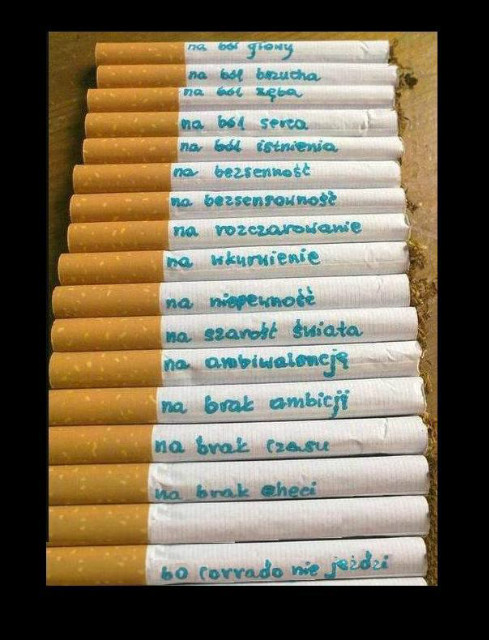 na ból głowy
na ból brzucha
na ból zęba
na ból serca
na ból istnienia
na bezsenność
na bezsensowność
na rozczarowanie
na wkurwienie
na niepewność
na szarość świata
na ambiwalencję
na brak ambicji
na brak czasu
na brak chęci
bo corrado nie jeździ